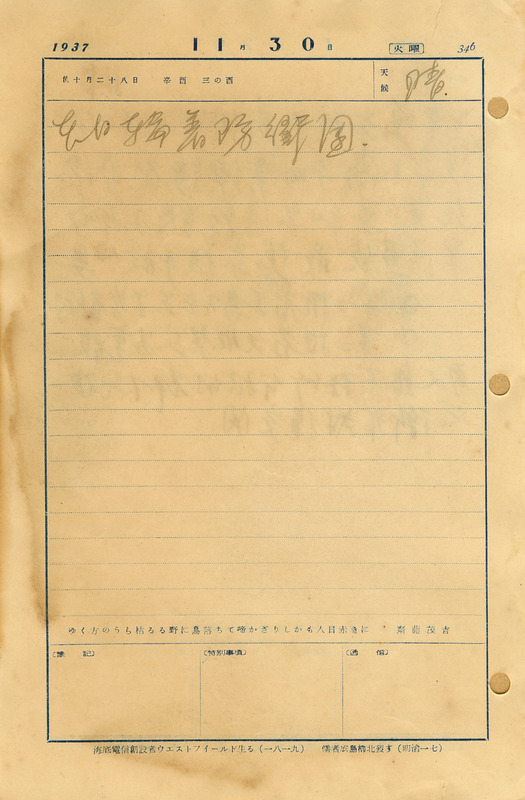 1937 11月30日 火曜 346
舊十月二十八日 辛酉 三の酉
天候 晴.
防衛圖.
ゆく方のうら枯るる野に鳥落ちて啼かざりしかも入日赤きに 齋藤茂吉
〔雜記〕 〔特別事項〕 〔通信〕
海底電信創設者ウエストフイールド生る（一八一九） 儒者広島梅北歿す（明治一七）